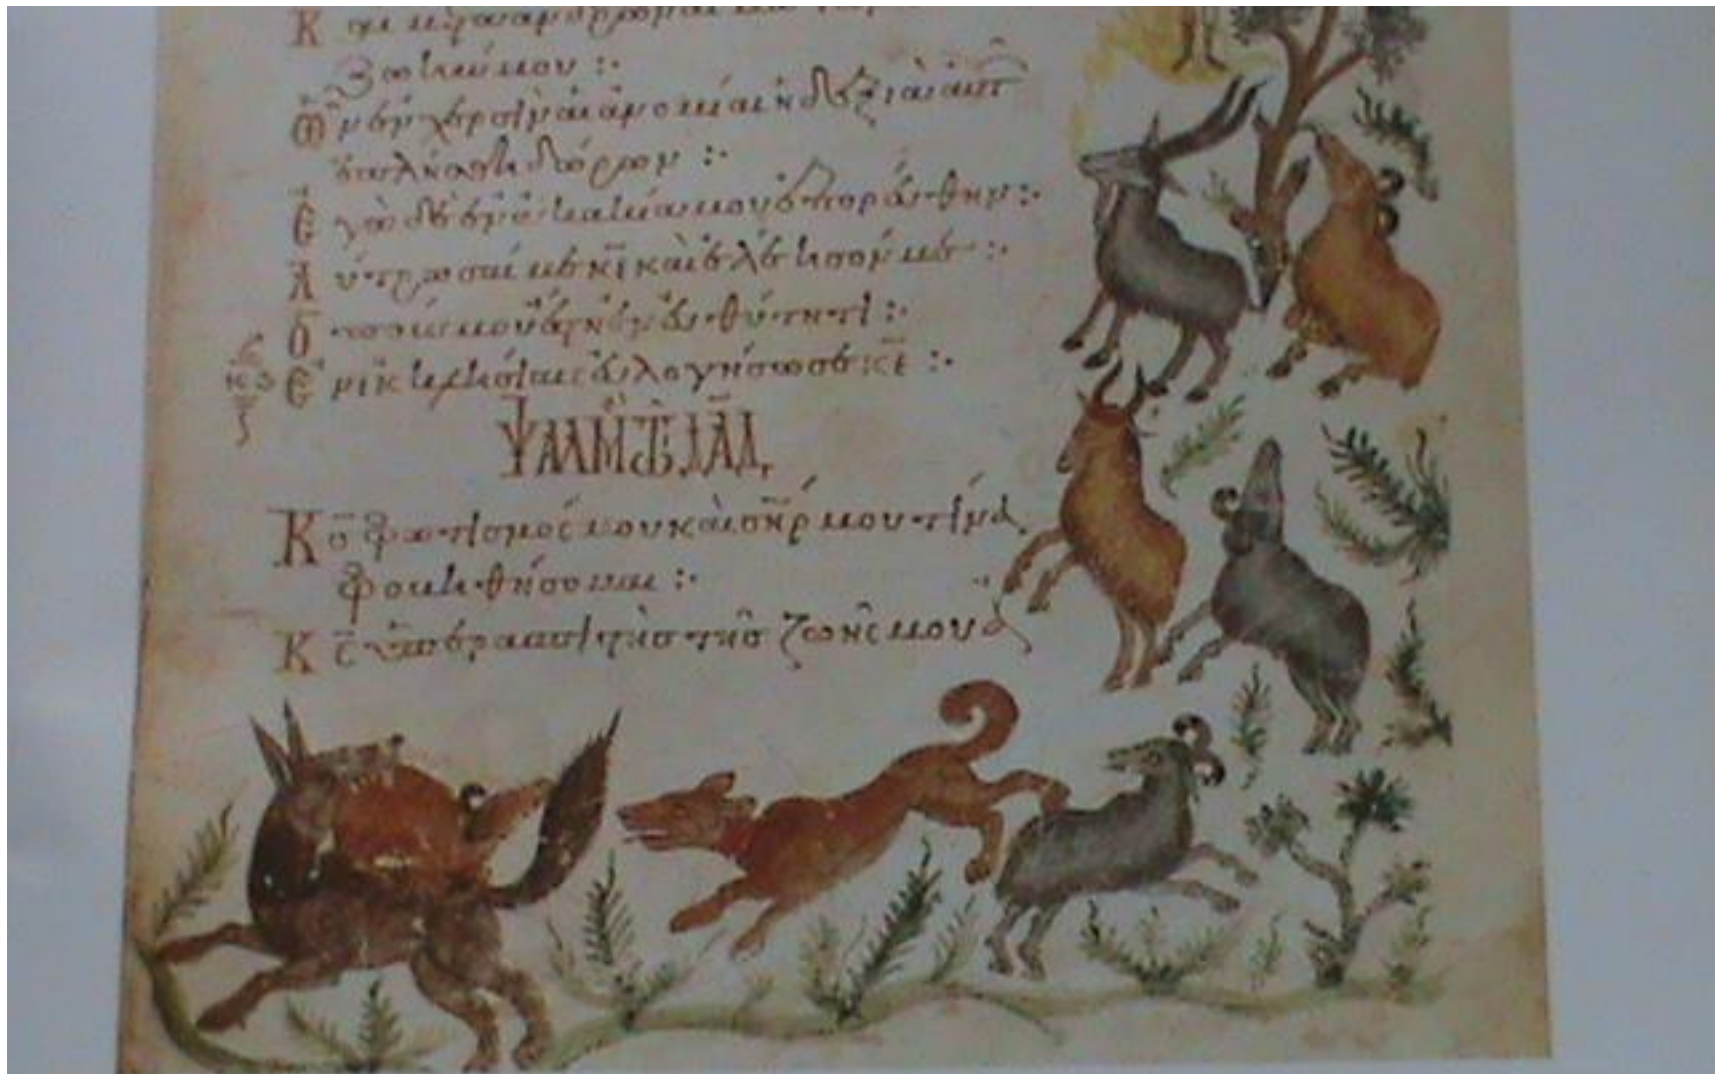 Καὶ μετὰ ἀνδρῶν αἱμάτων
ζωήν μου :·
Ὧν ἐν χερσὶν αἱ ἀνομίαι ἡ δεξιὰ αὐτ
ἐπλήσθη δώρων :·
Ἐγὼ δὲ ἐν ἀκακία μου ἐπορεύθην :·
Λύτρωσαί με κ̅ε̅ καὶ ἐλέησόν με :·
Ὁ ποῦς μου ἔστη ἐν εὐθύτητι :·
Ἐν ἐκκλησίαις εὐλογήσω σε κ̅ε̅ :·
ΨΑΛΜὸς Τῷ ΔΑΔ
Κ̅ς̅ φωτισμός μου καὶ σ̅η̅ρ̅ μου τίνα
φοβηθήσομαι :·
Κ̅ς̅ ὑπερασπιστὴς τῆς ζωῆς μου ἀ